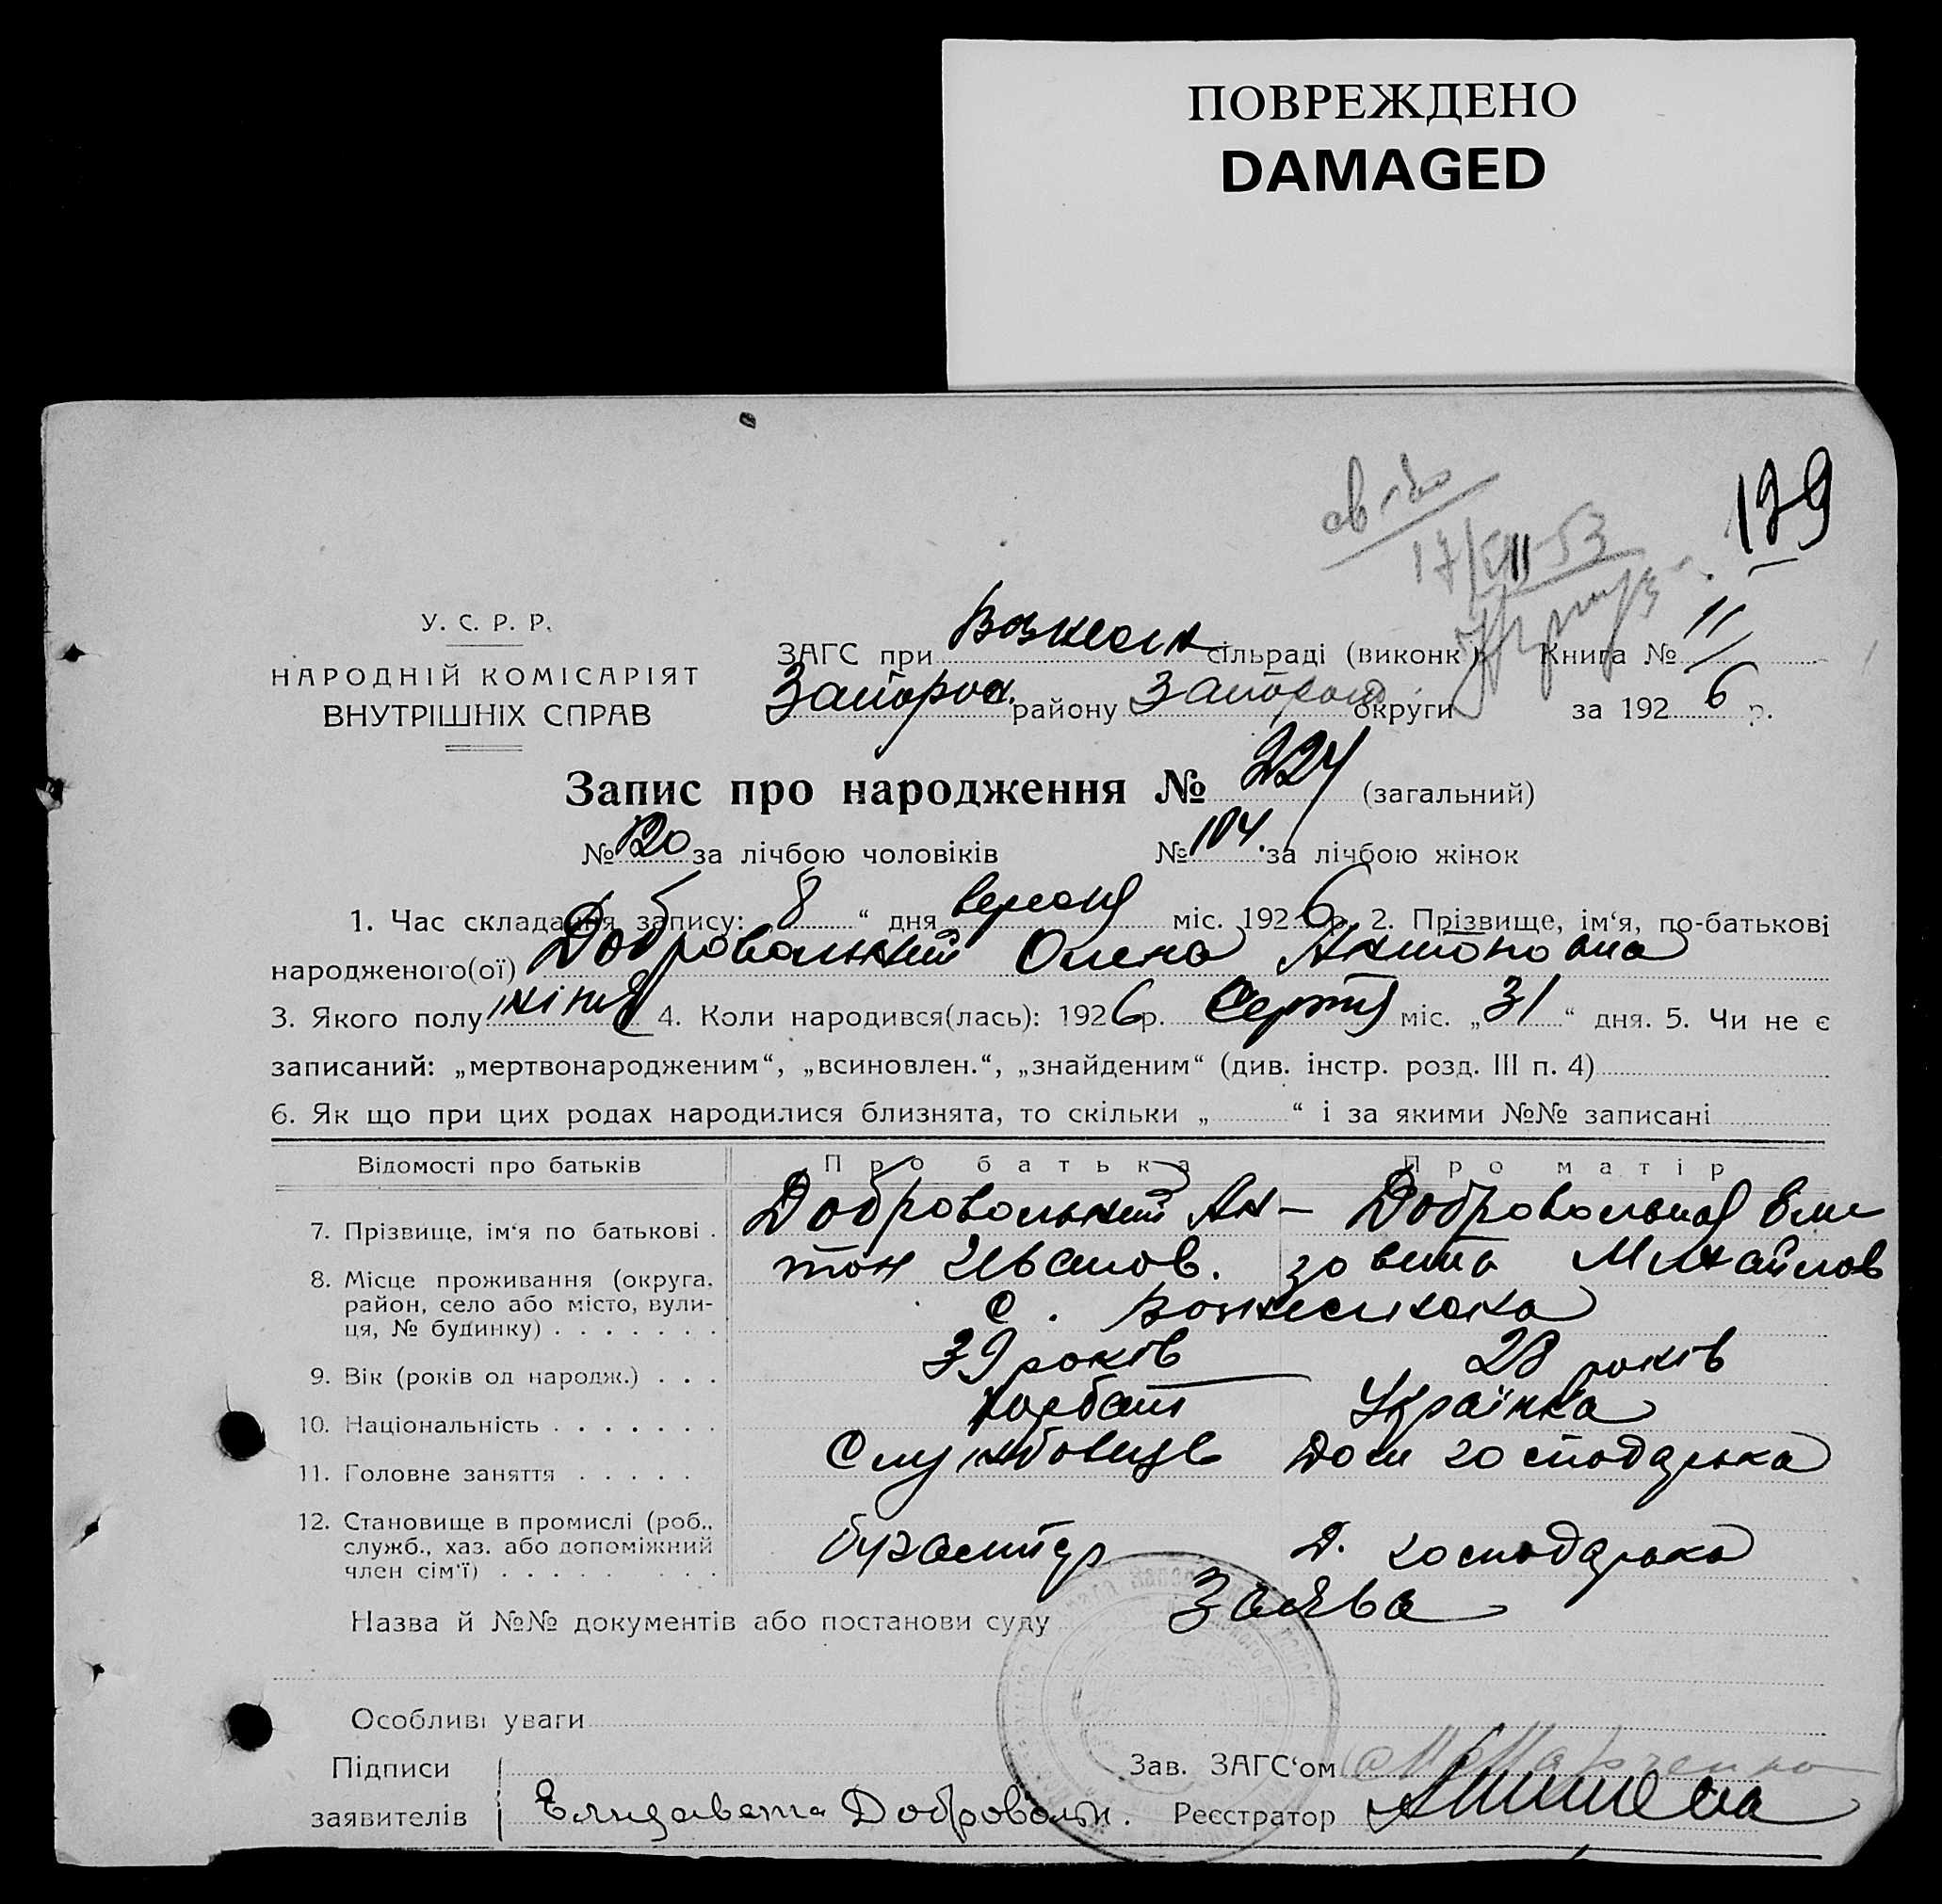 ПОВРЕЖДЕНО
DAMAGED
179
17/VIII-53
У. С. Р. Р.
НАРОДНІЙ КОМІСАРІЯТ
ВНУТРІШНІХ СПРАВ
ЗАГС при Вознесен сільраді (виконк.) Книга № 11
Запорож. району Запорож округи за 1926 р.
Запис про народження № 224 (загальний)
№ 120 за лічбою чоловіків № 104. за лічбою жінок
1. Час складання запису: 8 “ дня вересня міс. 1926 р. 2. Прізвище, ім‘я, по-батькові
народженого(ої) Добровольский Олена Антоновна
3. Якого полу жіноч 4. Коли народився(лась): 1926 р. Серпня міс. „31“ дня. 5. Чи не є
записаний: „мертвонародженим“, „всиновлен.“, „знайденим“ (див. інстр. розд. III п. 4)
6. Як що при цих родах народилися близнята, то скільки „ “ і за якими №№ записані
Відомості про батьків Про батька Про матір
7. Прізвище, ім‘я по батькові . Добровольский Ан- Добровольская Ели
тон Иванов. завета Михайлов
8. Місце проживання (округа, район, село або місто, вули-
ця, № будинку) . . . . . . . С. Вознесенська
9. Вік (років од народж.) . . . 39 років 28 років
10. Національність . . . . . . . Українка
11. Головне заняття . . . . . Службовець Дом господарька
12. Становище в промислі (роб.,
служб., хаз. або допоміжний бухгалтер Д. господарька
член сім‘ї) . . . . . . . . .
Назва й №№ документів або постанови суду Заява
Особливі уваги
Підписи Зав. ЗАГС‘ом
заявителів Елизавета Добровольск. Реєстратор